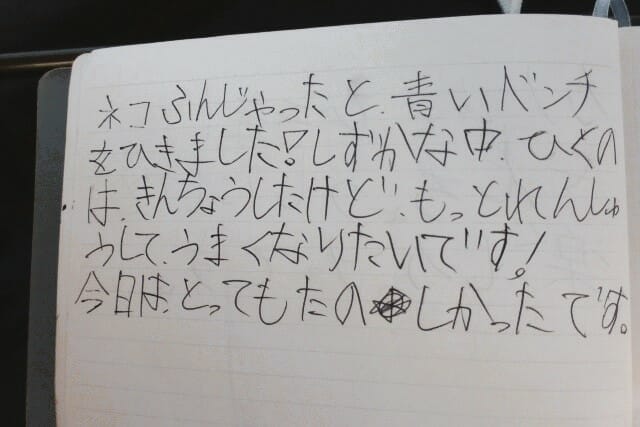 ネコふんじゃったと、青いベンチ
をひきました!しずかな中、ひくの
は、きんちょうしたけど、もっとれんしゅ
うして、うまくなりたいです!
今日は、とってもたのしかったです。